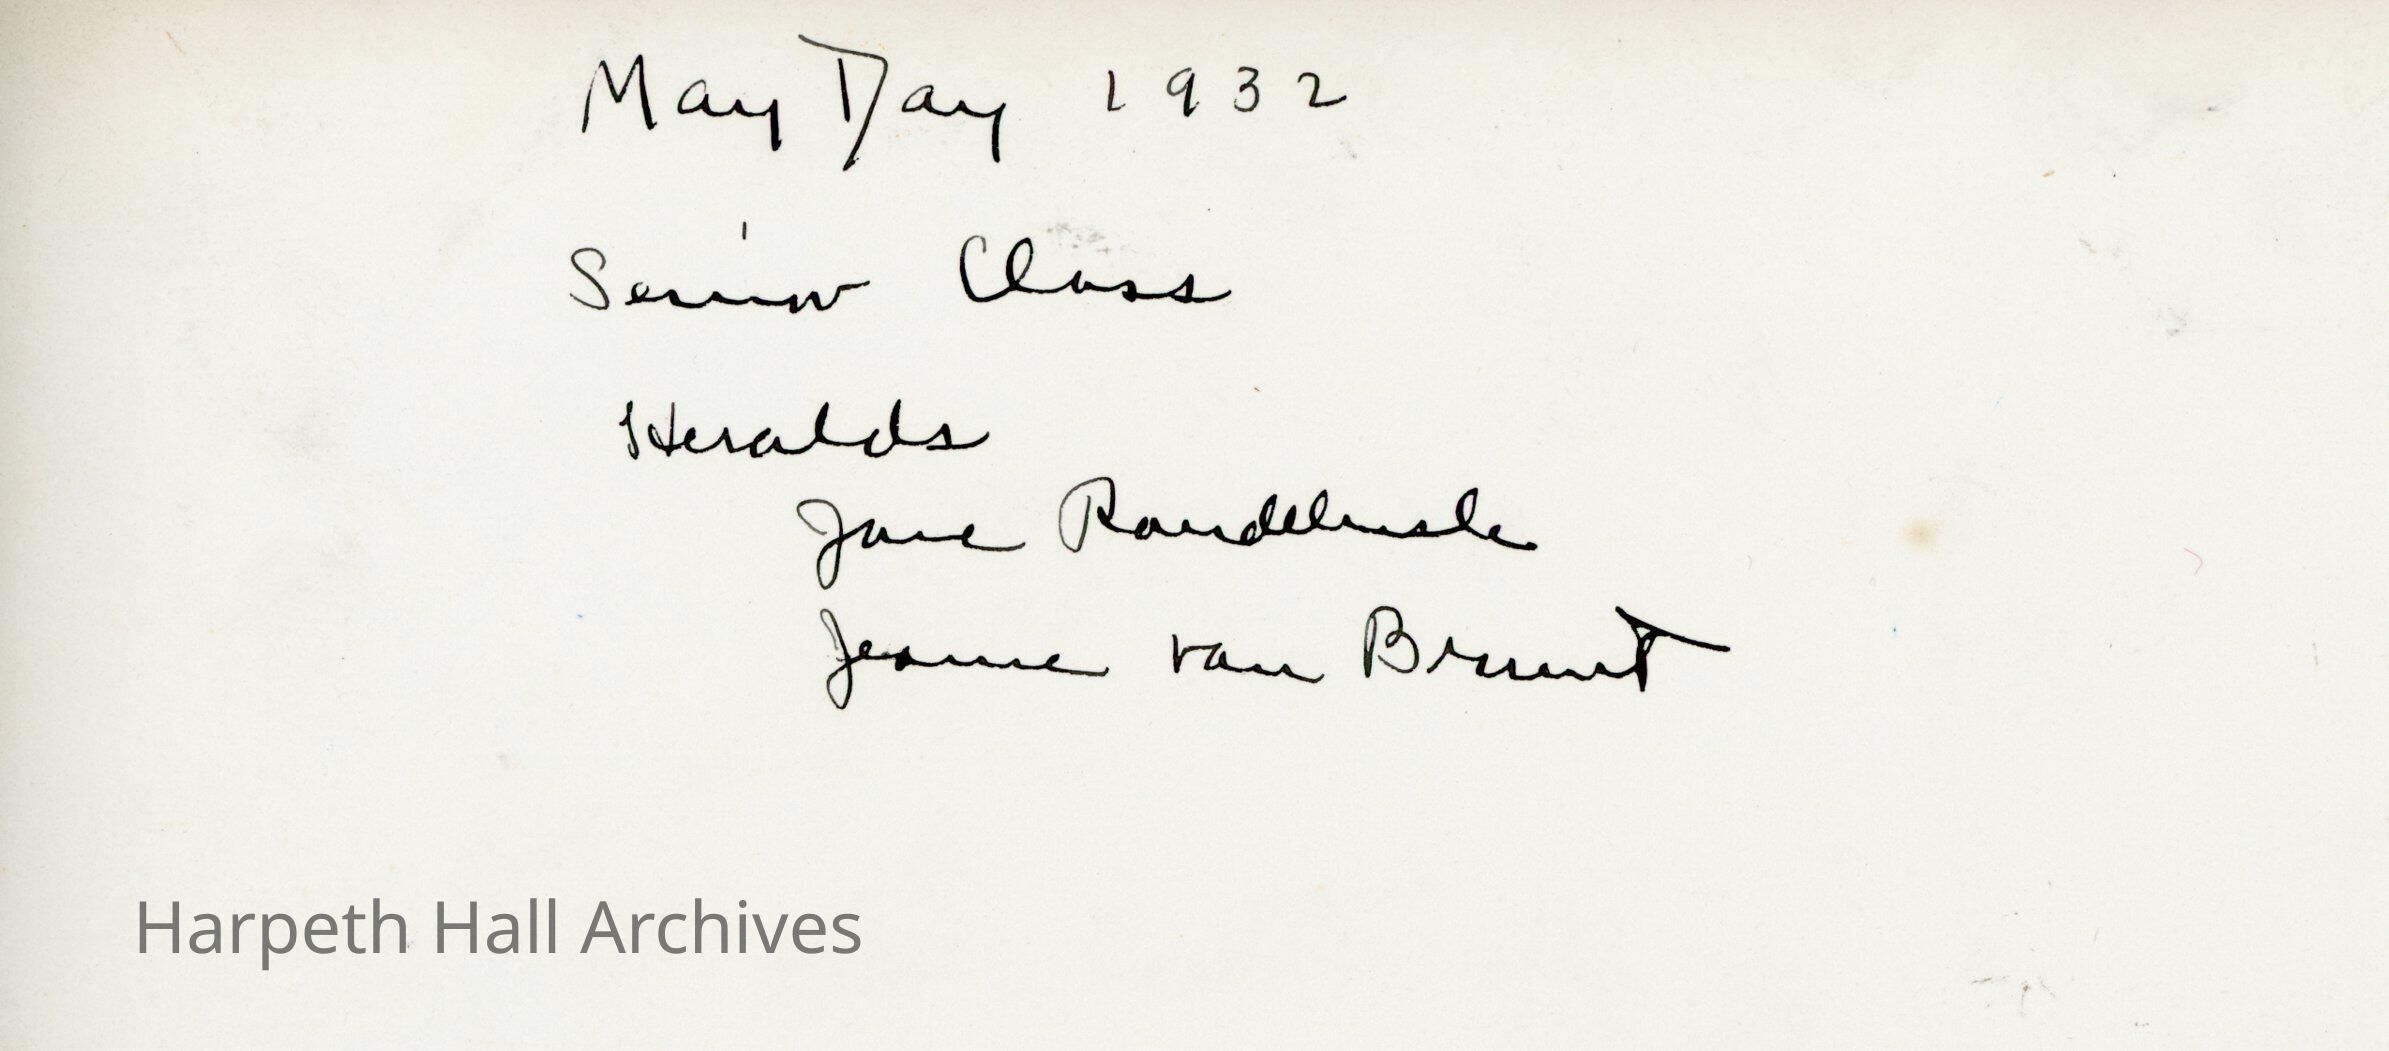 May Day 1932
Senior Class
Heralds
Jane
Jeanne van Brunt
Harpeth Hall Archives